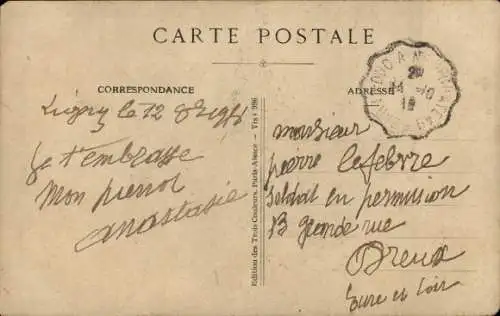 CARTE POSTALE
CORRESPONDANCE
ADRESSE
Ligny le 12 8bre 1918
Je t'embrasse
mon pierrot
anastasie
Edition des Trois Couleurs, Paris-Alsace
monsieur
pierre lefebvre
soldat en permission
13 grande rue
Dreux
Eure et Loir
2e
14 -10
18